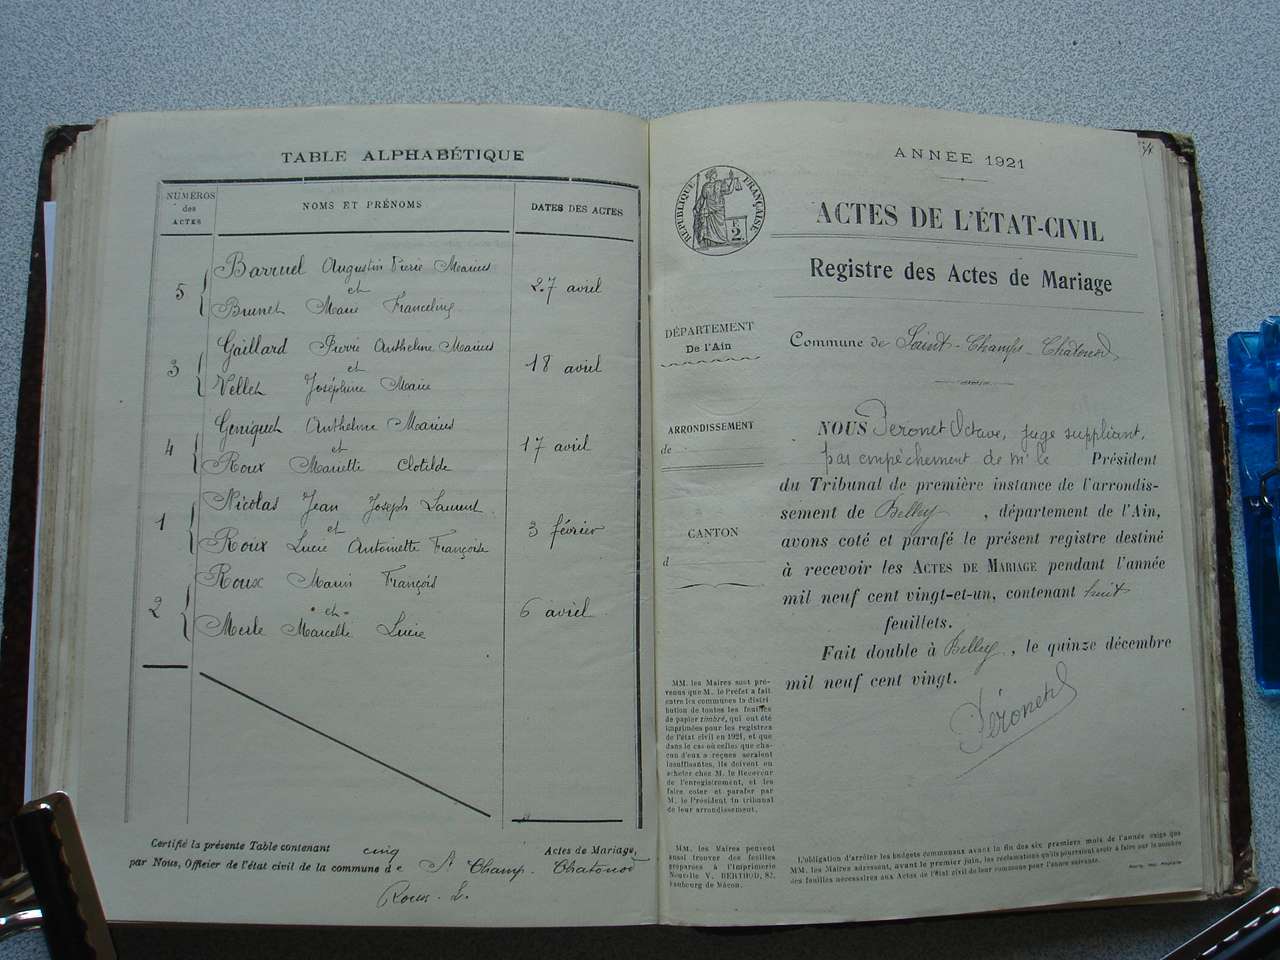 TABLE ALPHABÉTIQUE
NUMÉROS
des
ACTES
NOMS ET PRÉNOMS
DATES DES ACTES
5
Barruel Augustin Pierre Marius
et
Brunet Marie Franceline
27 avril
3
Gaillard Pierre Anthelme Marius
et
Vellet Joséphine Marie
18 avril
4
Geniquet Anthelme Marius
et
Roux Mariette Clotilde
17 avril
1
Nicolas Jean Joseph Laurent
et
Roux Lucie Antoinette Françoise
3 février
2
Roux Marius François
et
Merle Marcelle Lucie
6 avril
Certifié la présente Table contenant cinq Actes de Mariage,
par Nous, Officier de l'état civil de la commune de St Champ-Chatonod
Roux L.
ANNÉE 1921
RÉPUBLIQUE FRANÇAISE
2
ACTES DE L'ÉTAT-CIVIL
Registre des Actes de Mariage
DÉPARTEMENT
De l'Ain
Commune de Saint-Champ-Chatonod,
ARRONDISSEMENT
de
CANTON
d
NOUS Péronet Octave, juge suppliant,
par empêchement de Mr le Président
du Tribunal de première instance de l'arrondis-
sement de Belley, département de l'Ain,
avons coté et parafé le présent registre destiné
à recevoir les ACTES DE MARIAGE pendant l'année
mil neuf cent vingt-et-un, contenant huit
feuillets.
Fait double à Belley, le quinze décembre
mil neuf cent vingt.
Péronet
MM. les Maires sont pré-
venus que M. le Préfet a fait
entre les communes la distri-
bution de toutes les feuilles
de papier timbré, qui ont été
imprimées pour les registres
de l'état civil en 1921, et que
dans le cas où celles que cha-
cun d'eux a reçues seraient
insuffisantes, ils doivent en
acheter chez M. le Receveur
de l'enregistrement, et les
faire coter et parafer par
M. le Président du tribunal
de leur arrondissement.
MM. les Maires peuvent
aussi trouver des feuilles
préparées à l'Imprimerie
Nouvelle V. BERTHOD, 82,
Faubourg de Mâcon.
L'obligation d'arrêter les budgets communaux avant la fin des six premiers mois de l'année exige que
MM. les Maires adressent, avant le premier juin, les réclamations qu'ils pourraient avoir à faire sur le nombre
des feuilles nécessaires aux Actes de l'état civil de leur commune pour l'année suivante.